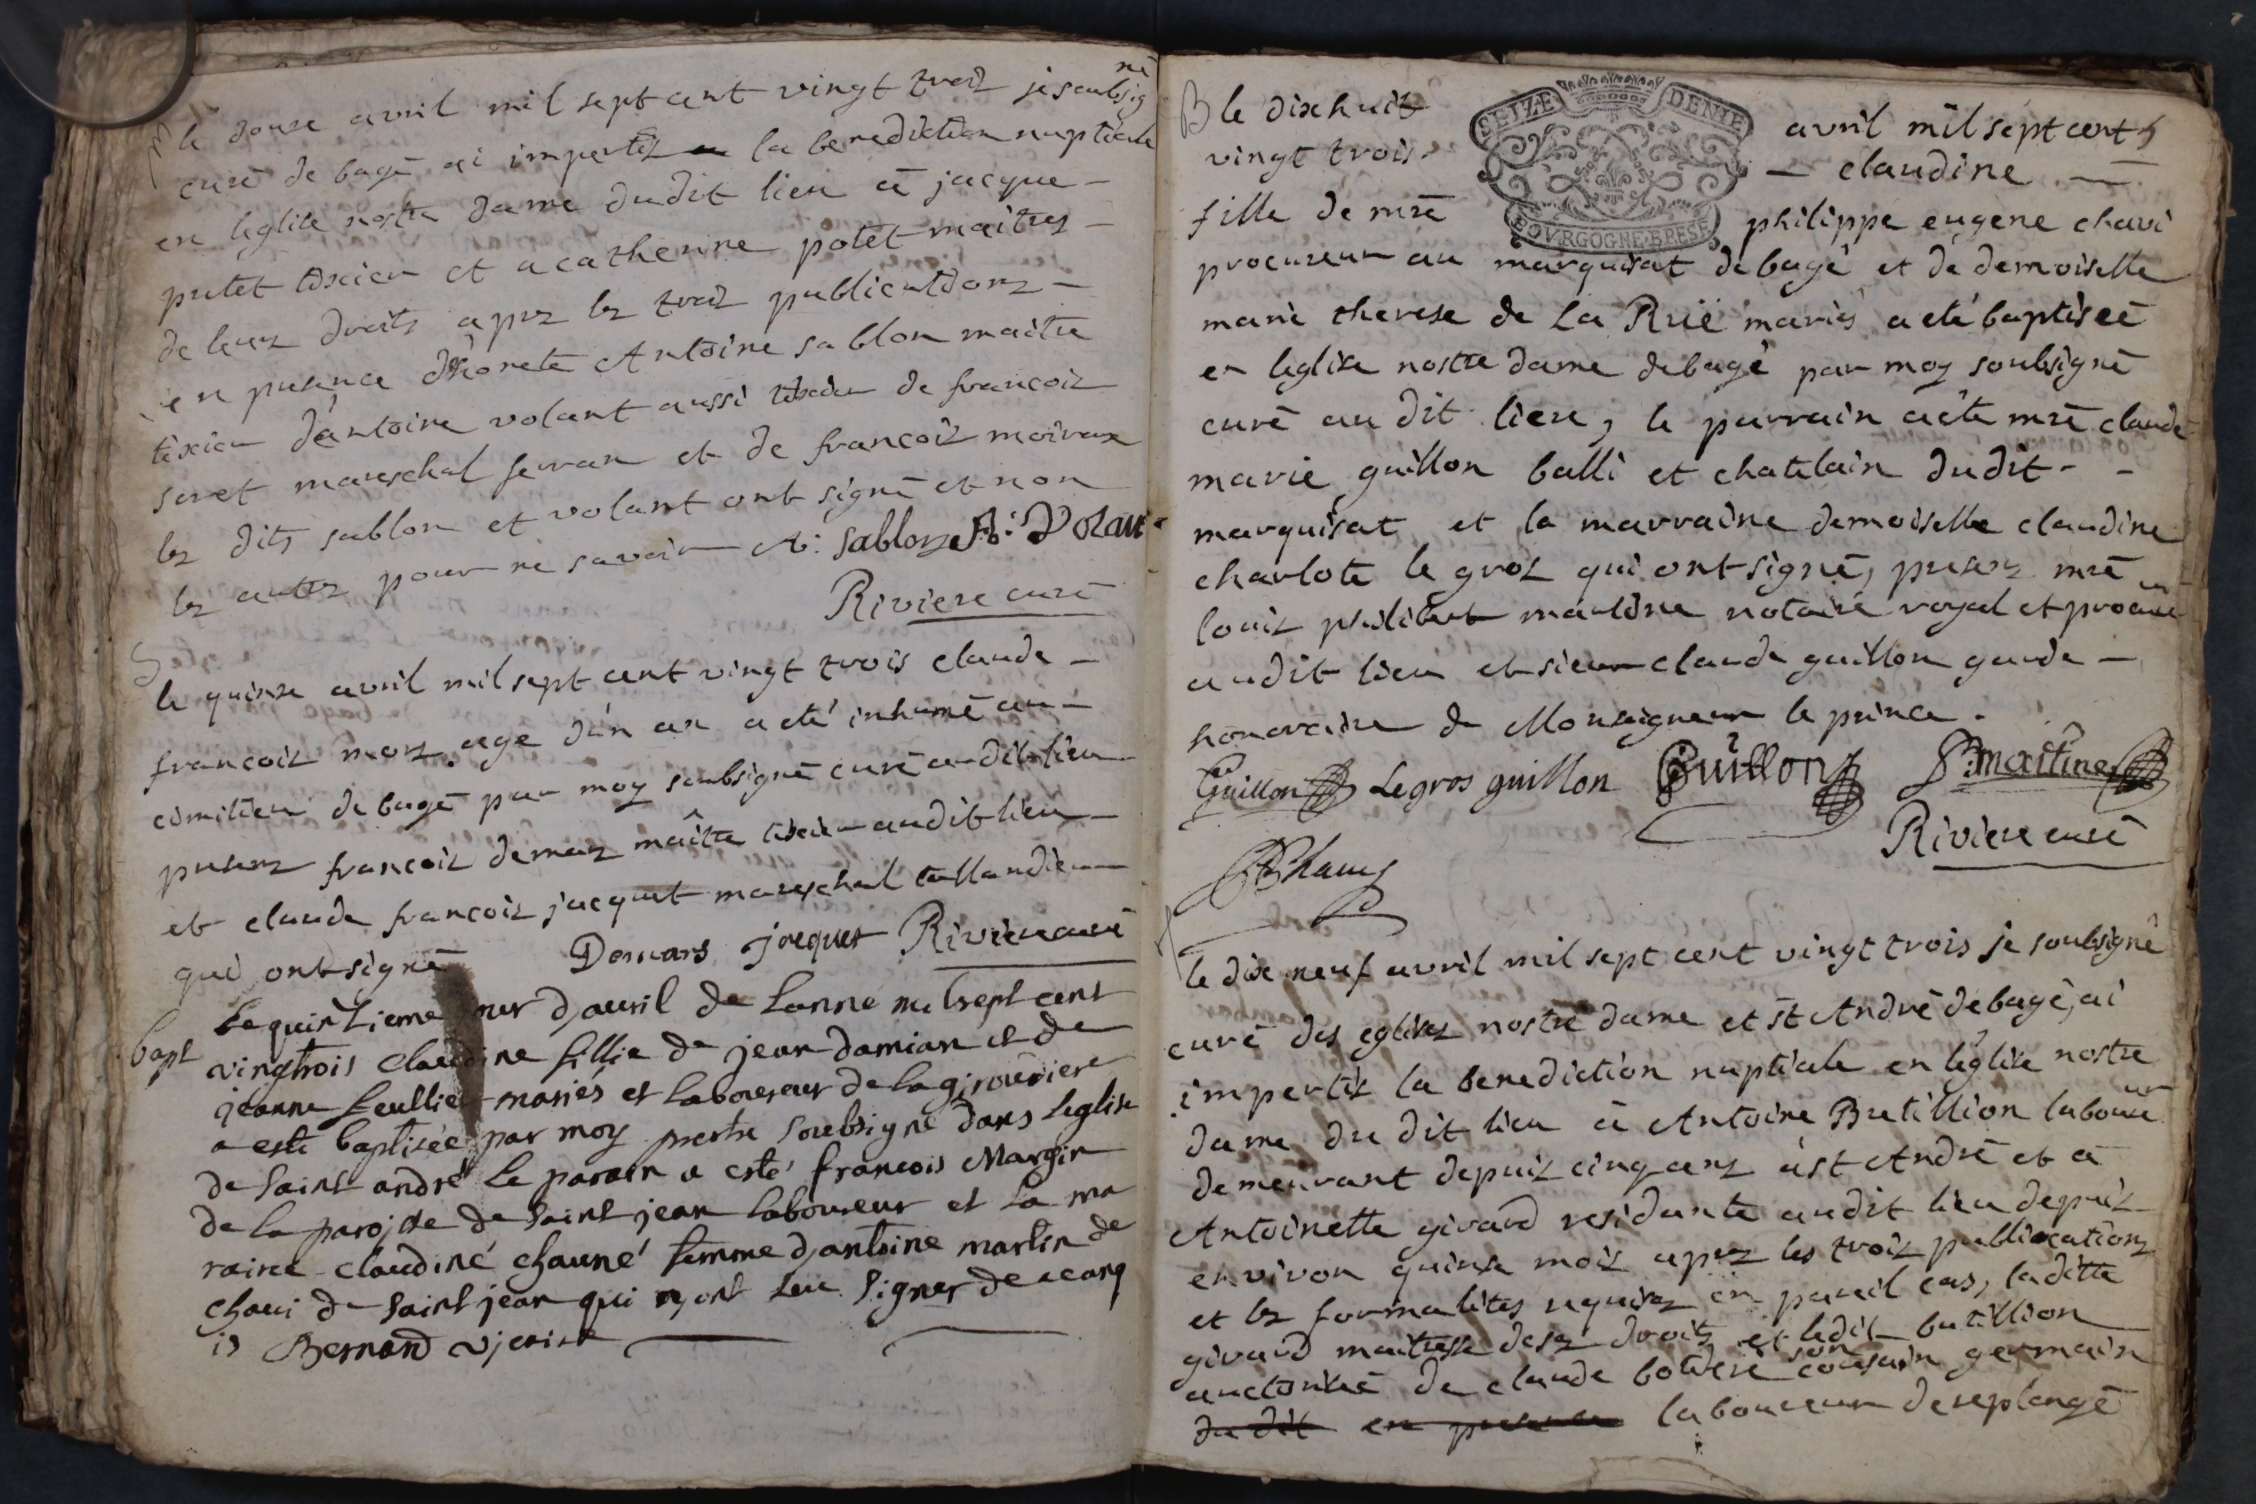 le douze avril mil sept cent vingt trois je soubsigné
curé de bagé ai impertis la benediction nuptiale
en léglise nostre dame dudit lieu a jacque
putet tixier et a catherine potet maitres
de leurs droits apres les trois publications
en presence dhonete Antoine sablon maitre
tixier d'antoine volant aussi tixier de francois
seret mareschal ferran et de francois moiroux
les dits sablon et volant ont signé et non
les autres pour ne savoir A: Sablon A: Volant
Riviere curé
S
le quinze avril mil sept cent vingt trois claude
francois mor agé d'un an a eté inhumé au
cimitiere de bagé par moy soubsigné curé audit lieu
presens francois demars maître tixier audit lieu
et claude francois jacquet mareschal tallandier
qui ont signé Demars jacquet Riviere curé
bapt
Le quinzieme jour d'auril de Lanné mil sept cent
vingtrois Claudine fillie de jean damian et de
jeanne feullie mariés et laboureur de la girouriere
a esté baptisée par moy prestre soubsigné dans Leglise
de saint andré Le parain a esté francois Margin
de la paroisse de saint jean laboureur et la ma
raine Claudine chauné femme d'antoine martin de
chaui de saint jean qui n'ont sceu signer de ce enq
is Bernard vicaire
B le dix huit avril mil sept cent
vingt trois claudine
SEIZE DENIE
BOVRGOGNE BRESE
fille de mre philippe eugene chavi
procureur au marquisat de bagé et de demoiselle
marie therese de La Rüe mariés a eté baptiseé
en leglise nostre dame de bagé par moy soubsigné
curé au dit lieu, le parrain a eté mre claude
marie guillon balli et chatelain dudit
marquisat et la marraine demoiselle claudine
charlote le gros qui ont signé, presens mre
louis philibert martine notaire royal et procureur
audit lieu et sieur claude guillon garde
honoraire de Monseigneur le prince.
Guillon Legros guillon Guillon P. martine
Riviere curé
Chavy
le dix neuf avril mil sept cent vingt trois je soubsigné
curé des eglises nostre dame et st André de bagé, ai
impertis la benediction nuptiale en léglise nostre
dame du dit lieu a Antoine Bretillion laboureur
demeurant depuis cinq ans a st André et a
Antoinette girard residante audit lieu depuis
environ quinze mois apres les trois publications
et les formalités requises en pareil cas, ladite
girard maitresse de ses droits et ledit butillion
auctorisé de claude botiere son cousain germain
du dit en presence laboureur de replonge